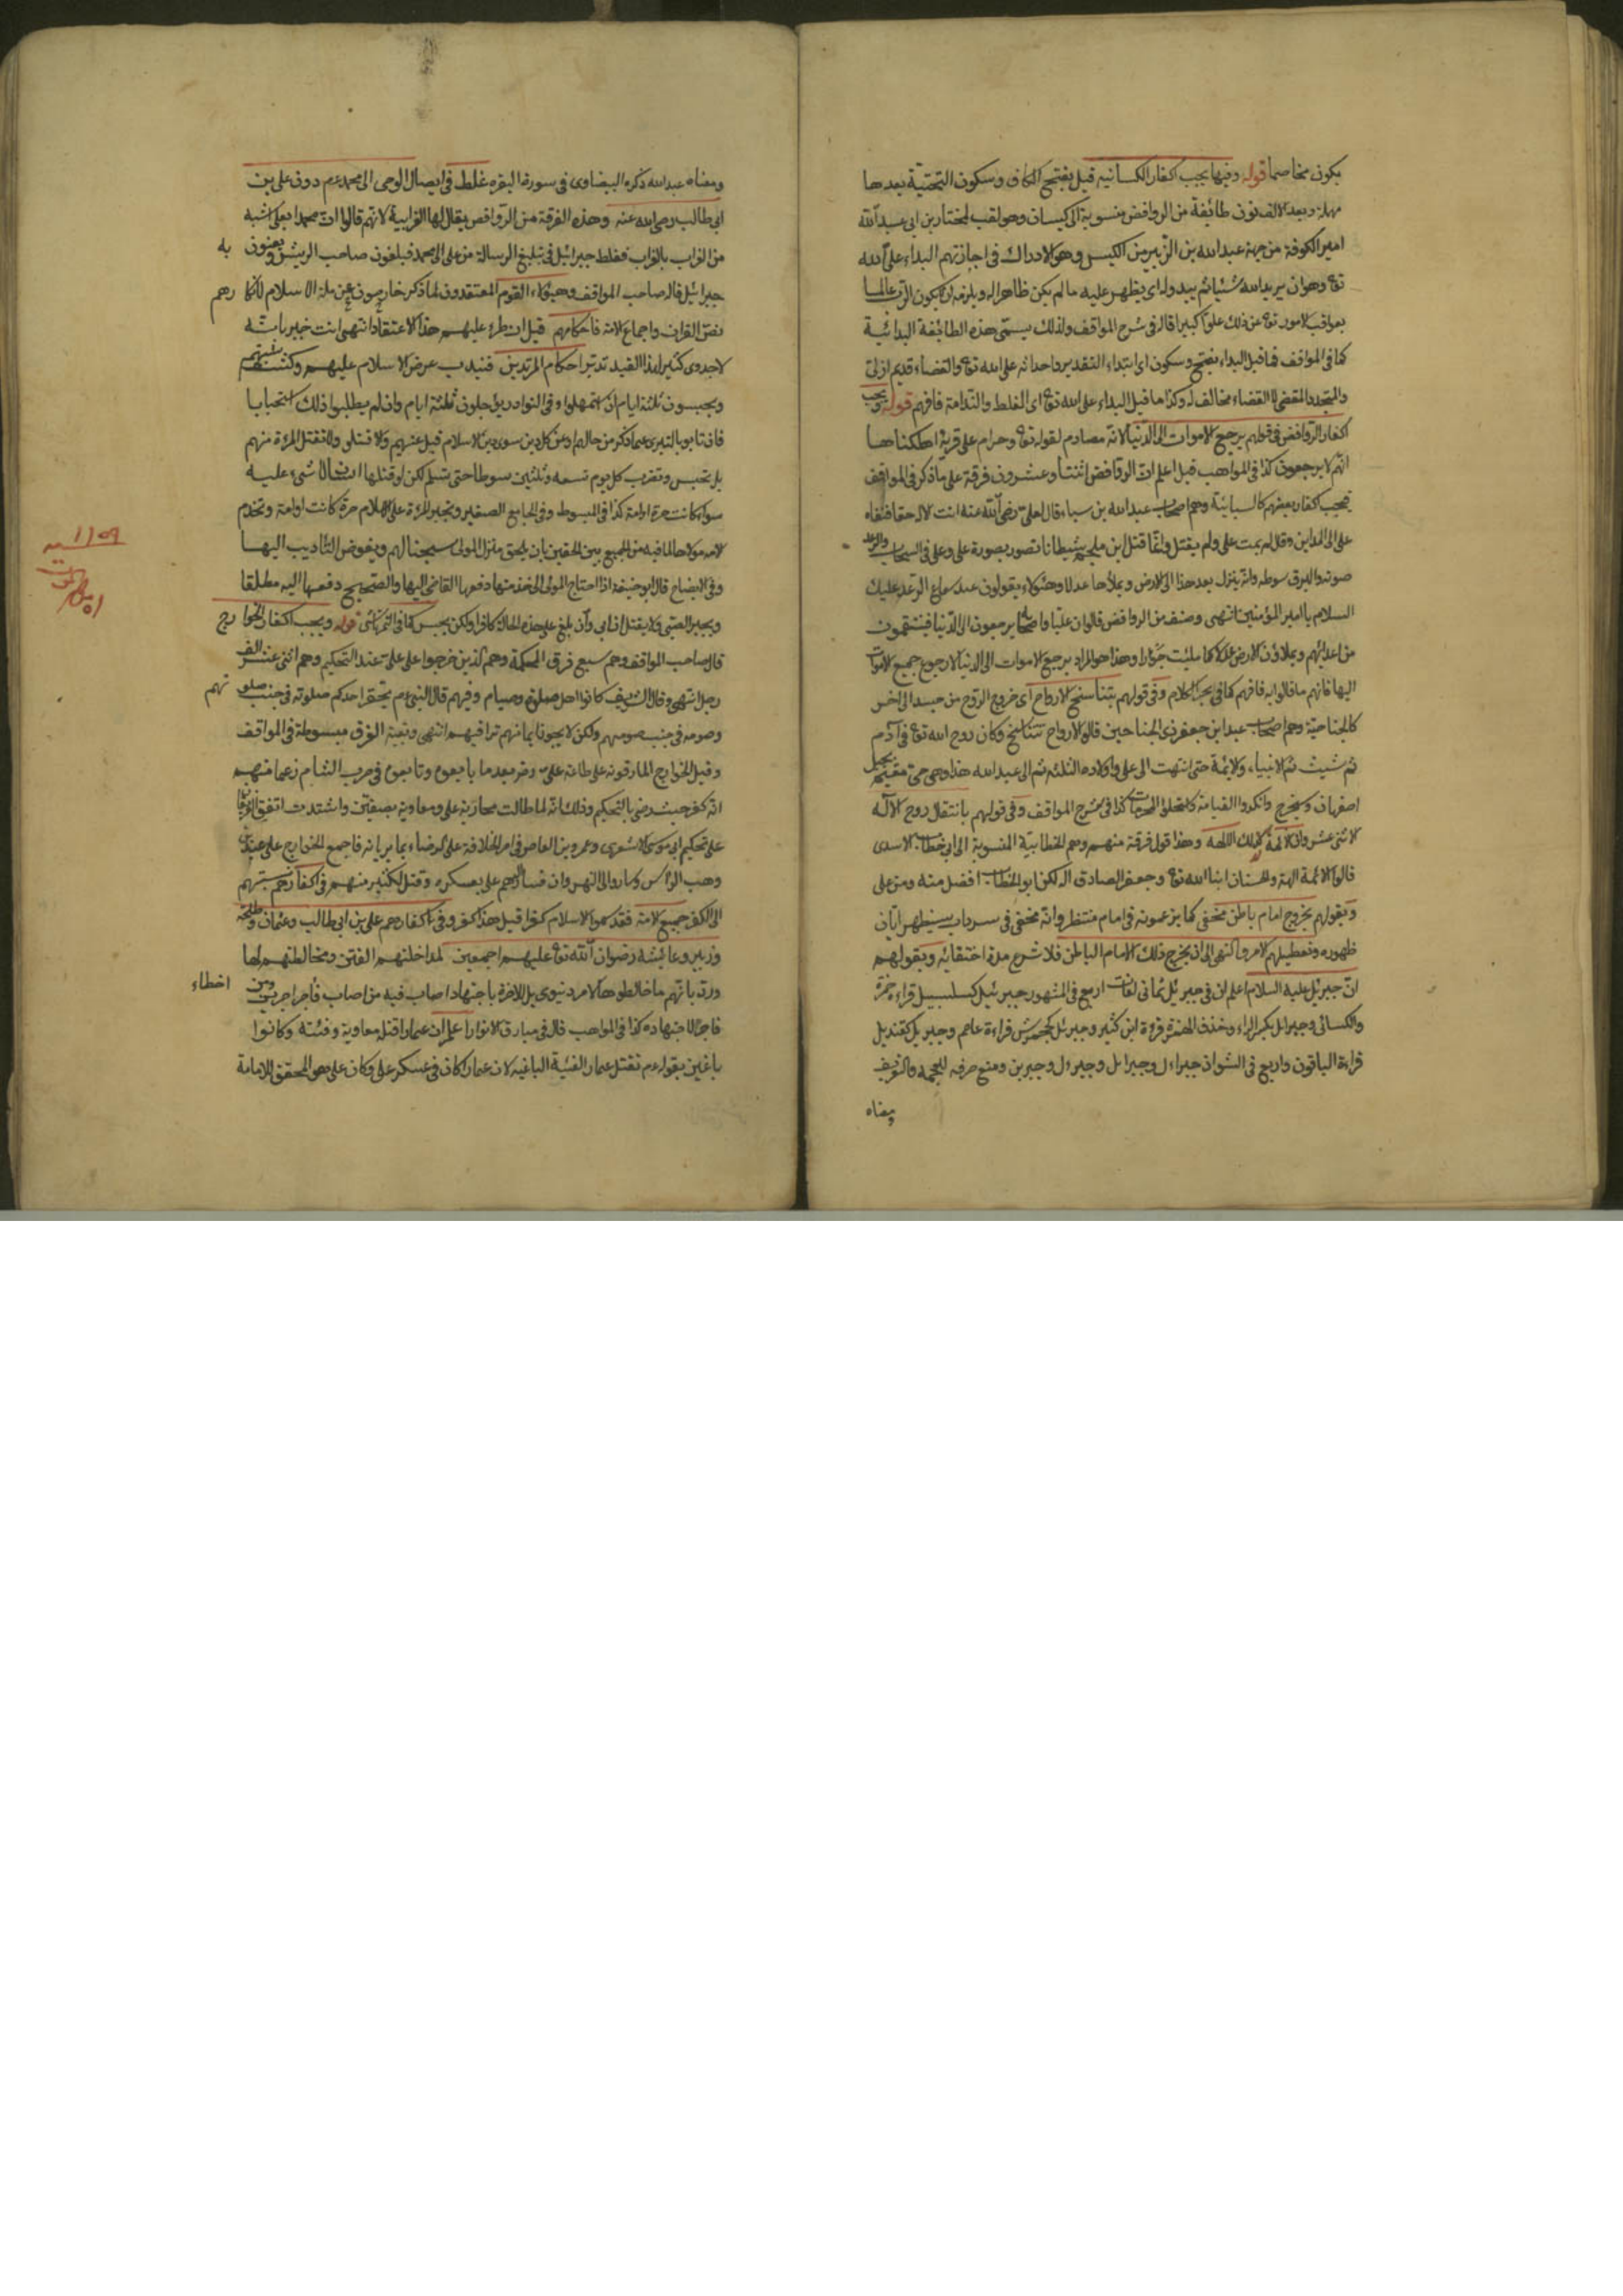 يكون مخاصما قوله وفيها يجب اكفار الكيسانية قيل بفتح الكاف وسكون التحتية بعدها
مهملة وبعد الالف نون طائفة من الروافض منسوبة الى كيسان وهو لقب لمختار بن ابى عبد الله
امير الكوفة من جهة عبد الله بن الزبير من الكيس وهو الادراك فى اجازتهم البداء على الله
تع وهو ان يريد الله شيئا ثم يبدو له اى يظهر عليه ما لم يكن ظاهرا له ويلزمه ان لا يكون الرب عالما
بعواقب الامور تع عن ذلك علوا كبيرا قاله فى شرح المواقف ولذلك يسمى هذه الطائفة البدائية
كما فى المواقف فما قيل البداء بفتح وسكون اى ابتداء التقدير واحداثه على الله تع والقضاء قديم ازلى
والمتجدد المقضى لا القضاء مخالف له وكذا ما قيل البداء على الله تع اى الغلط والندامة فافهم قوله ويجب
اكفار الروافض فى قولهم برجع الاموات الى الدنيا لانه مصادم لقوله تع وحرام على قرية اهلكناها
انهم لا يرجعون كذا فى المواهب قيل اعلم ان الروافض اثنتا وعشرون فرقة على ما ذكر فى المواقف
يجب اكفار بعضهم كالسبائية وهم اصحاب عبد الله بن سباء قال لعلى رضى الله عنه انت لاله حقا فنفاه
على الى المداين وقال لم يمت على ولم يقتل وانما قتل ابن ملجم شيطانا تصور بصورة على وعلى فى السحاب والرعد
صوته والبرق سوطه وانه ينزل بعد هذا الى الارض ويملأها عدلا وهؤلاء يقولون عند سماع الرعد عليك
السلام يا امير المؤمنين انتهى وصنف من الروافض قالوا ان عليا واصحابه يرجعون الى الدنيا فينتقمون
من اعدائهم ويملاؤن الارض عدلا كما ملئت جورا وهذا هو المراد برجع الاموات الى الدنيا لا رجوع جميع الاموات
اليها فانهم ما قالوا به فافهم كما فى بحر الكلام وفى قولهم بتناسخ الارواح اى خروج الروح من جسد الى اخر
كالجناحية وهم اصحاب عبد ابن جعفر ذى الجناحين قالوا الارواح تتناسخ وكان روح الله تع فى آدم
ثم شيث ثم الانبياء والائمة حتى انتهت الى على واولاده الثلثة ثم الى عبد الله هذا وهى حى مقيم بجبل
اصفهان وسيخرج وانكروا القيامة كاستحلوا المحرمات كذا فى شرح المواقف وفى قولهم بانتقال روح الاله
لاثنى عشر وان الائمة كذلك اللهة وهذا قول فرقة منهم وهم الخطابية المنسوبة الى ابى خطاب الاسدى
قالوا الائمة الهة والحسنان ابنا الله تع وجعفر الصادق اله لكن ابو الخطاب افضل منه ومن على
وبقولهم بخروج امام باطن مخفى كما يزعمونه فى امام منتظر وانه مخفى فى سرداب سيظهر ابان
ظهوره وتعطيلهم الامر والنهى الى ان يخرج ذلك الامام الباطن فلا شرع مدة اختفائه وبقولهم
ان جبرئل عليه السلام اعلم ان فى جبرئل ثمانى لغات اربع فى المشهور جبرئيل كسلسبيل قراءة حمزة
والكسائى وجبرئل بكسر الراء وحذف الهمزة قراءة ابن كثير وجبرئل كجحمرش قراءة عاصم وجبريل كقنديل
قراءة الباقون واربع فى الشواذ جبراءل وجبرايل وجبرءل وجبرين ومنع صرفه للعجمة والتعريف
ومعناه
ومعناه عبد الله ذكره البيضاوى فى سورة البقرة غلط فى ايصال الوحى الى محمد عم دون على بن
ابى طالب رضى الله عنه وهذه الفرقة من الروافض يقال لها الغرابية لانهم قالوا ان محمدا بعلى اشبه
من الغراب بالغراب فغلط جبرائيل فى تبليغ الرسالة من على الى محمد فيلعنون صاحب الريش ويعنون به
جبرائيل قاله صاحب المواقف وهؤلاء القوم المعتقدون لما ذكر خارجون عن ملة الاسلام لانكارهم
نص القران واجماع الامة فاحكامهم قيل ان طرء عليهم هذا الاعتقاد انتهى انت خبير بانه
لا جدوى كثير لهذا القيد تدبر احكام المرتدين فيندب عرض الاسلام عليهم وكشف شبهتهم
ويحبسون ثلثة ايام ان استمهلوا وفى النوادر يؤجلون ثلثة ايام وان لم يطلبوا ذلك استحبابا
فان تابو بالتبرى عما ذكر من حالهم او عن كل دين سوى دين الاسلام قبل عنهم والا قتلو ولا تقتل المرءة منهم
بل تحبس وتضرب كل يوم تسعة وثلثين سوطا حتى تسلم لكن لو قتلها انسان لا شىء عليه
سواء كانت حرة او امة كذا فى المبسوط وفى الجامع الصغير وتجبر المرءة على الاسلام حرة كانت او امة وتخدم
الامة مولاها لما فيه من الجميع بين الحقين بان يلحق منزل المولى سجنا لهم ويفوض التاديب اليها
وفى الايضاح قال ابو حنيفة اذا احتاج المولى الى خدمتها دفعها القاضى اليها والصحيح دفعها اليه مطلقا
ويجبر الصبى ولا يقتل ان ابى وان بلغ على هذه الحال كافرا ولكن يحبس كما فى التمرتاشى قوله ويجب اكفار الخوارج
قال صاحب المواقف وهم سبع فرق المحكمة وهم الذين خرجوا على على عند التحكيم وهم اثنى عشر الف
رجل انتهى وقال الشريف كانوا اهل صلوة وصيام وفيهم قال النبى عم يحقر احدكم صلوته فى جنب صلوتهم
وصومه فى جنب صومهم ولكن لا يجوز ايمانهم تراقيهم انتهى وبقية الفرق مبسوطة فى المواقف
وقيل الخوارج المارقونه على طاعة على رضى بعد ما بايعوه وتابعوه فى حرب الشام زعما منهم
انه كفر حيث رضى بالتحكيم وذلك انه لما طالت محاربة على ومعاوية بصفين واشتدت اتفق الفريقان
على تحكيم ابى موسى الاشعرى وعمرو بن العاص فى امر الخلافة على الرضاء بما يريانه فاجمع الخوارج على عبد الله بن
وهب الراسى وساروا الى النهروان فسار اليهم على بعسكره وقتل الكثير منهم فى اكفارهم سبتهم
الى الكفر جميع الامة فقد سموا الاسلام كفرا قيل هذا كفر وفى اكفارهم على بن ابى طالب وعثمان وطلحة
وزبير وعائشة رضوان الله تع عليهم اجمعين لمداخلتهم الفتن ومخالطتهم لها
ورد بانهم ما خالطوها لامر دنيوى بل للاخرة باجتهاد اصاب فيه من اصاب فاجر اجرين ومن اخطاء
فاجر الاجتهاده كذا فى المواهب قال فى مبارق الانوار اعلم ان عمارا قتله معاوية وفئته وكانوا
باغين بقوله عم تقتل عمار الفئية الباغية لان عمارا كان فى عسكر على وكان على هو المحقق للامامة
١١٥٩